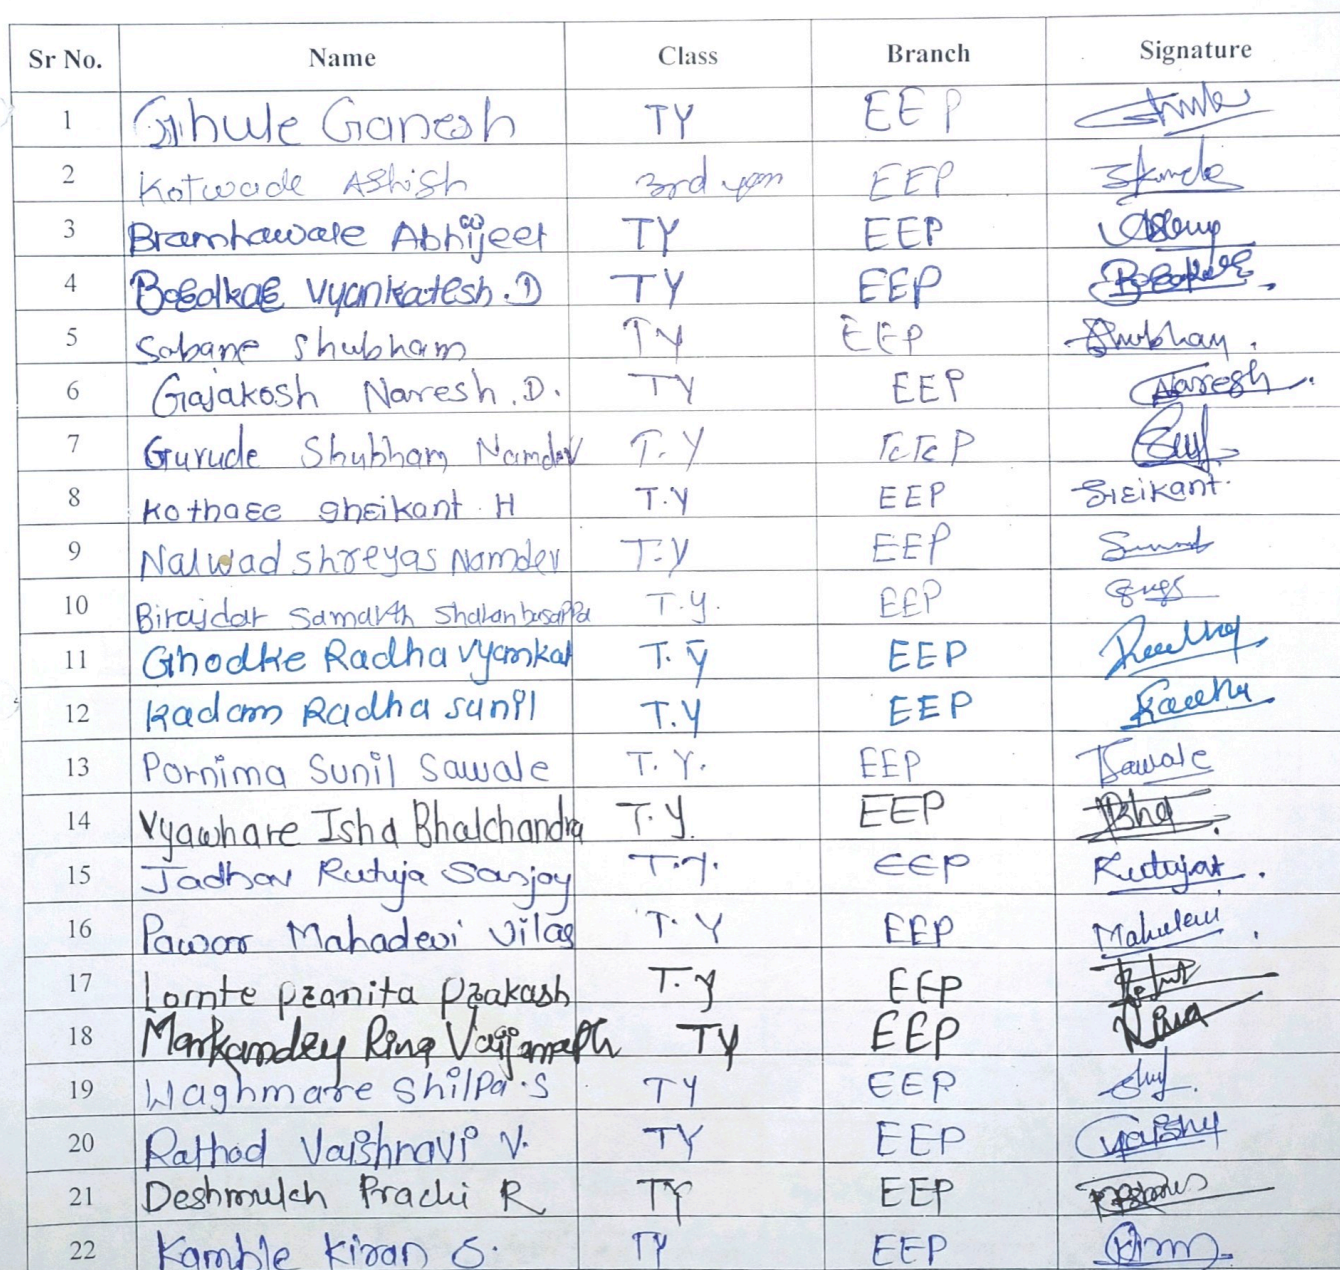 Sr No. Name Class Branch Signature
1 Ghule Ganesh TY EEP
2 Kotwade Ashish 3rd year EEP
3 Bramhawale Abhijeet TY EEP
4 Vyankatesh.D TY EEP
5 Sabane Shubham TY EEP Shubham.
6 Gajakosh Naresh.D. TY EEP Naresh.
7 Gurude Shubham Namdev T.Y EEP
8 Kothare Shrikant H T.Y EEP Shrikant.
9 Nalwad Shreyas Namdev T.Y EEP
10 Birajdar Samarth Sharanbasappa T.Y. EEP
11 Ghodke Radha Vyankat T.Y EEP
12 Kadam Radha Sunil T.Y EEP
13 Pornima Sunil Sawale T.Y. EEP Sawale
14 Vyawhare Isha Bhalchandra T.Y. EEP
15 Jadhav Rutuja Sanjay T.Y. EEP Rutuja.
16 Pawar Mahadevi Vilas T.Y EEP
17 Lomte Pranita Prakash T.Y EEP
18 Markandey Rina Vaijanath TY EEP Rina
19 Waghmare Shilpa.S TY EEP
20 Rathod Vaishnavi V. TY EEP
21 Deshmukh Prachi R TY EEP
22 Kamble Kiran S. TY EEP